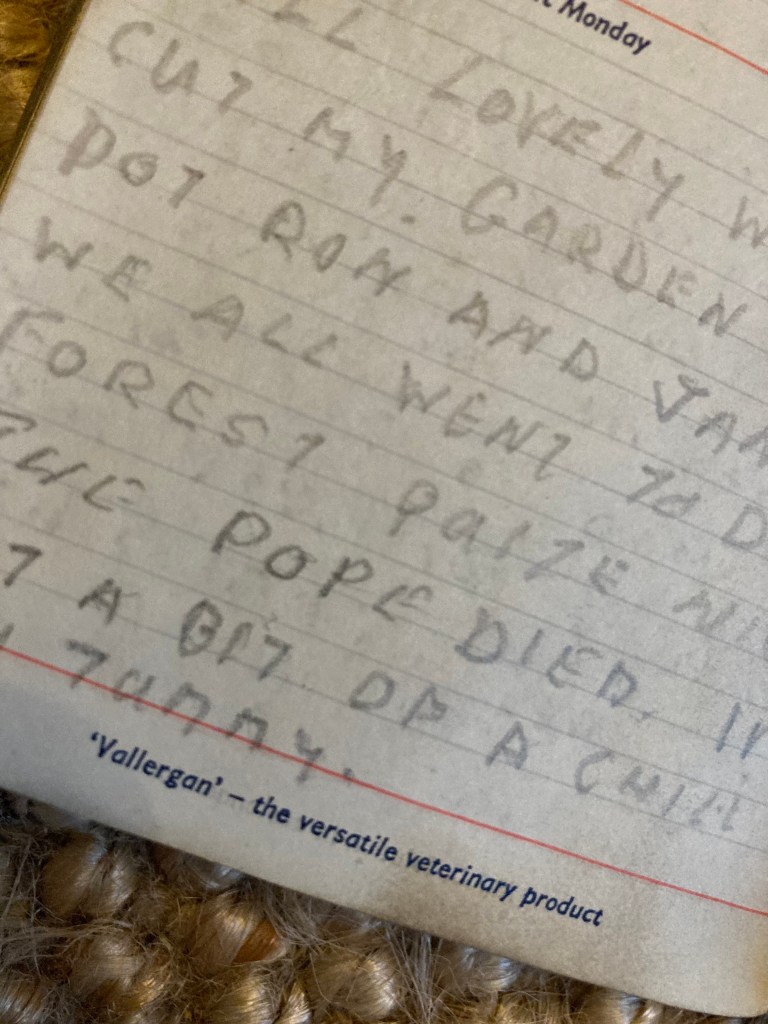 Monday
LOVELY
CUT MY. GARDEN
DOT RON AND
WE ALL WENT TO
FOREST PRIZE
THE POPE DIED.
A BIT OF A CHILL
TUMMY.
'Vallergan' – the versatile veterinary product